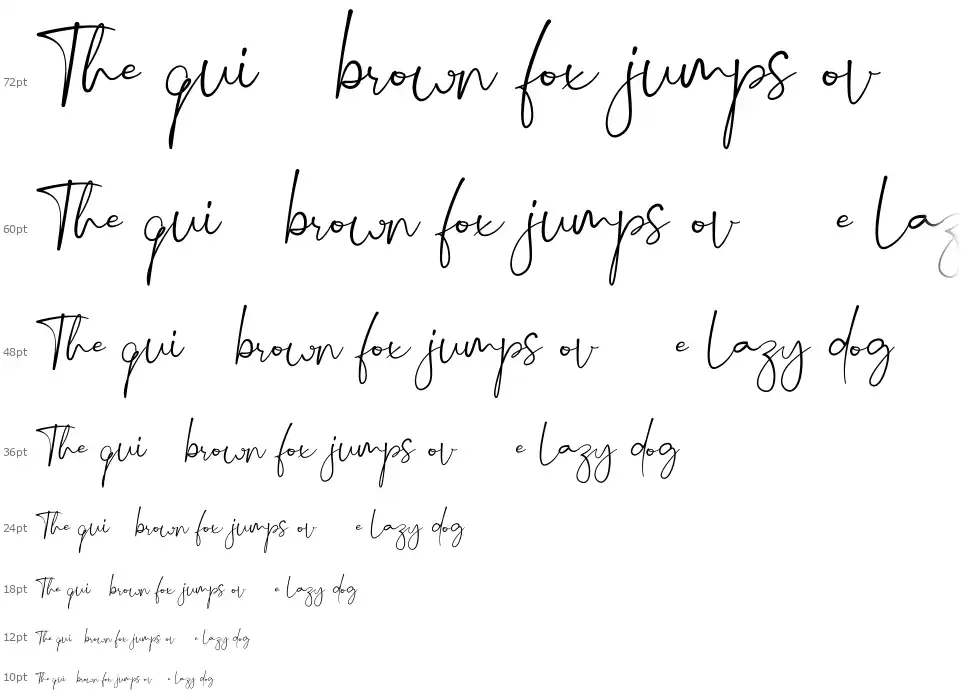 72pt The qui brown fox jumps ov
60pt The qui brown fox jumps ov e Laz
48pt The qui brown fox jumps ov e Lazy dog
36pt The qui brown fox jumps ov e Lazy dog
24pt The qui brown fox jumps ov e Lazy dog
18pt The qui brown fox jumps ov e Lazy dog
12pt The qui brown fox jumps ov e Lazy dog
10pt The qui brown fox jumps ov e Lazy dog